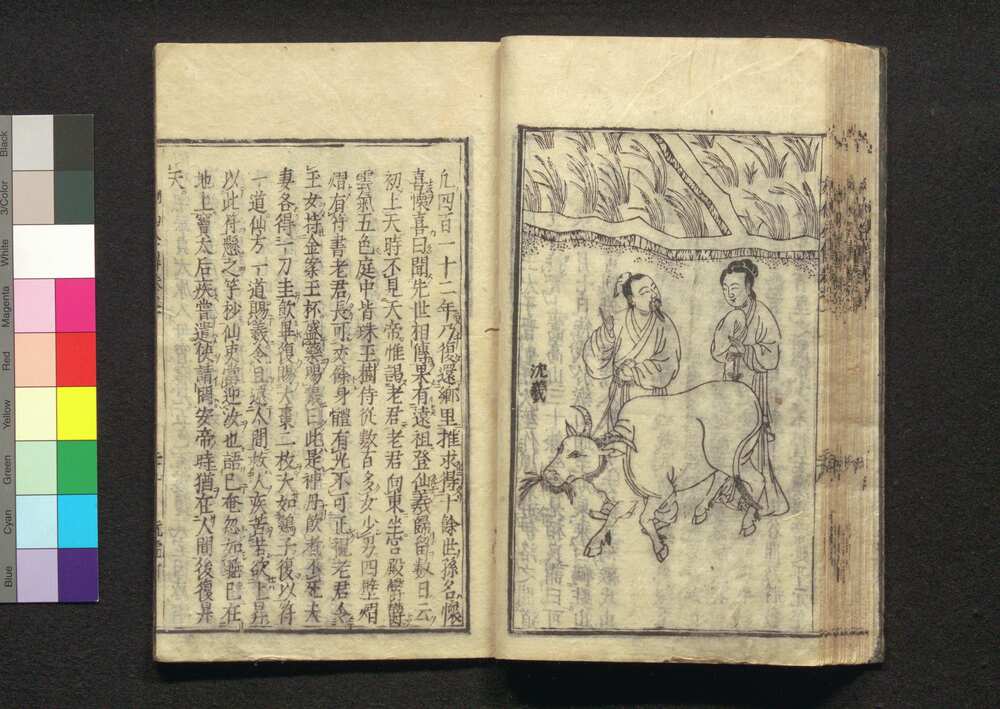 沈羲
凡四百一十二年乃復還鄉里推求得十餘世孫名懷
喜懷喜曰聞先世相傳果有遠祖登仙羲歸留數日云
初上天時不見天帝惟謁老君老君向東坐宮殿欝欝
雲氣五色庭中皆珠玉樹侍從數百多女少男四壁熠
熠有符書老君長可丈餘身體有光不可正視老君令
玉女持金案玉杯盛藥賜羲曰此是神丹飲者不死夫
妻各得一刀圭飲畢復賜大棗二枚大如鷄子復以符
一道仙方一道賜羲令且還人間救人疾苦若欲上昇
以此符懸之竿杪仙吏當迎汝也語已奄忽如寐已在
地上竇太后疾嘗遣使請問安帝時猶在人間後復昇
天
Black
3/Color
White
Magenta
Red
Yellow
Green
Cyan
Blue